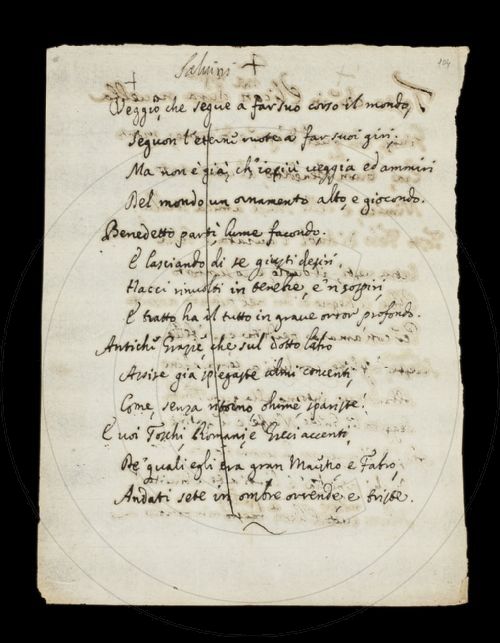 Salvini
104
Veggio, che segue a far suo corso il mondo,
Seguon l'eterne ruote a far suoi giri;
Ma non è già, ch'io più veggia ed ammiri
Del mondo un ornamento alto, e giocondo.
Benedetto partì lume facondo;
E lasciando di se giusti desiri,
Hacci rinvolti in tenebre, e 'n sospiri
E tratto ha il tutto in grave orror profondo.
Antiche Grazie, che sul dotto labro
Assise già spiegaste almi concenti,
Come, senza ritorno ohime, spariste!
E voi Toschi, Romani, e Greci accenti,
De' quali egli era gran Mastro e Fabro,
Andati sete in ombre orrende, e triste.